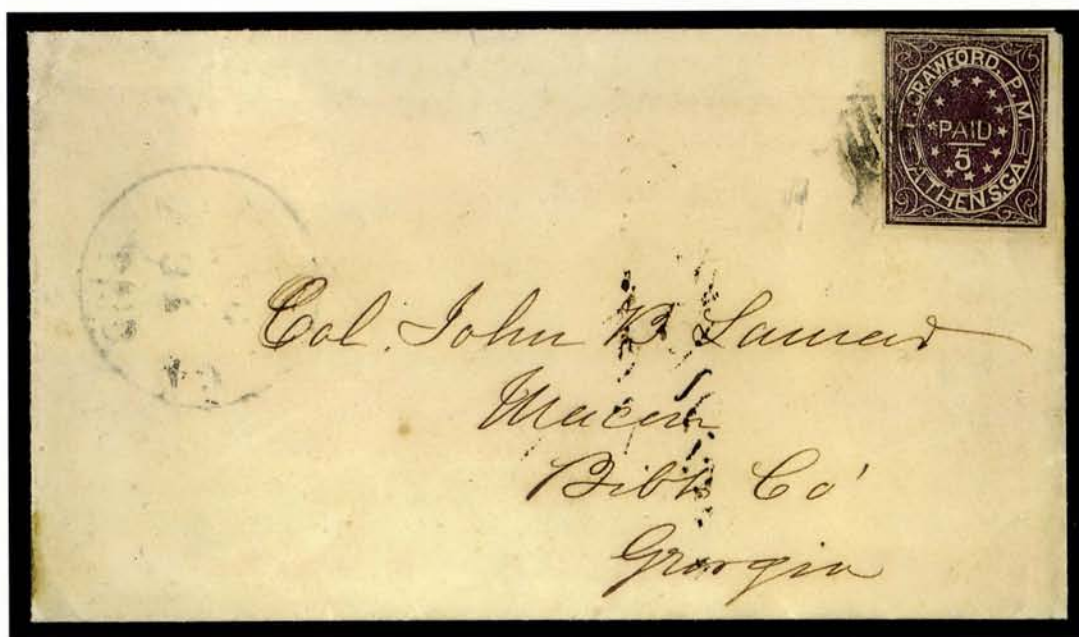 T. CRAWFORD, P.M.
PAID
5
ATHENS, GA.
Col. John B Lamar
Macon
Bibb Co'
Georgia